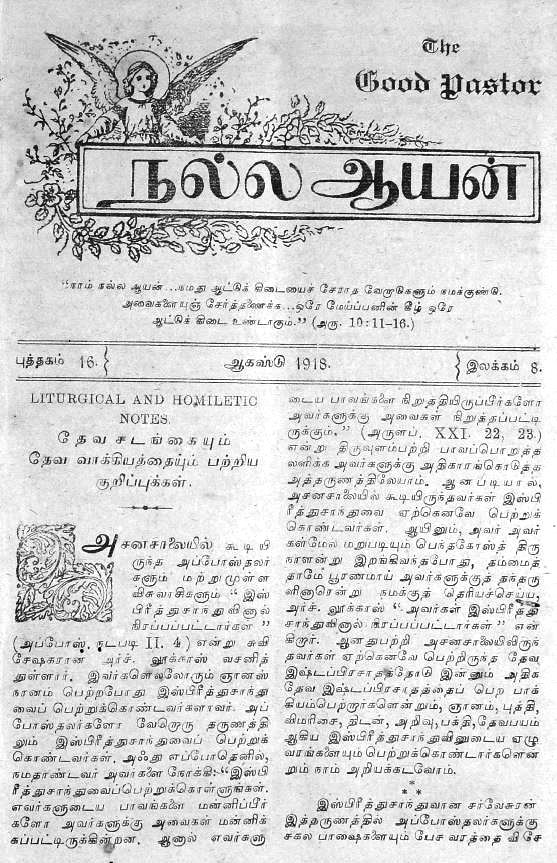 The
Good Pastor
நல்ல ஆயன்
"நாம் நல்ல ஆயன்...நமது ஆட்டுக் கிடையைச் சேராத வேறாடுகளும் நமக்குண்டு.
அவைகளையுஞ் சேர்த்தணைக்க...ஒரே மேய்ப்பனின் கீழ் ஒரே
ஆட்டுக் கிடை உண்டாகும்." (அரு. 10:11-16.)
புத்தகம் 16.
ஆகஸ்டு 1918.
இலக்கம் 8.
LITURGICAL AND HOMILETIC
NOTES.
தேவ சடங்கையும்
தேவ வாக்கியத்தையும் பற்றிய
குறிப்புக்கள்.
அசனசாலையில் கூடியி
ருந்த அப்போஸ்தலர்
களும் மற்றுமுள்ள
விசுவாசிகளும் "இஸ்
பிரீத்துசாந்துவினால்
நிரப்பப்பட்டார்கள்"
(அப்போஸ். நடபடி II. 4) என்று சுவி
சேஷகரான அர்ச். லூக்காஸ் வசனித்
துள்ளார். இவர்களெல்லோரும் ஞானஸ்
நானம் பெற்றபோது இஸ்பிரீத்துசாந்து
வைப் பெற்றுக்கொண்டவர்களாவர். அப்
போஸ்தலர்களோ வேறொரு தருணத்தி
லும் இஸ்பிரீத்துசாந்துவைப் பெற்றுக்
கொண்டவர்கள். அஃது எப்போதெனில்,
நமதாண்டவர் அவர்களை நோக்கி: "இஸ்பி
ரீத்துசாந்துவைப்பெற்றுக்கொள்ளுங்கள்.
எவர்களுடைய பாவங்களை மன்னிப்பீர்
களோ அவர்களுக்கு அவைகள் மன்னிக்
கப்பட்டிருக்கின்றன. ஆனால் எவர்களு
டைய பாவங்களை நிறுத்தியிருப்பீர்களோ
அவர்களுக்கு அவைகள் நிறுத்தப்பட்டி
ருக்கும்." (அருளப். XXI. 22, 23.)
என்று திருவுளம்பற்றி பாவப்பொறுத்த
லளிக்க அவர்களுக்கு அதிகாரங்கொடுத்த
அத்தருணத்திலேயாம். ஆனபடியால்,
அசனசாலையில் கூடியிருந்தவர்கள் இஸ்பி
ரீத்துசாந்துவை ஏற்கெனவே பெற்றுக்
கொண்டவர்கள். ஆயினும், அவர் அவர்
கள்மேல் மறுபடியும் பெந்தகோஸ்த் திரு
நாளன்று இறங்கிவந்தபோது, தம்மைத்
தாமே பூரணமாய் அவர்களுக்குத் தந்தரு
ளினாரென்று நமக்குத் தெரியச்செய்ய,
அர்ச். லூக்காஸ் "அவர்கள் இஸ்பிரீத்து
சாந்துவினால் நிரப்பப்பட்டார்கள்" என்
கிறார். ஆனதுபற்றி அசனசாலையிலிருந்
தவர்கள் ஏற்கெனவே பெற்றிருந்த தேவ
இஷ்டப்பிரசாதத்தோடு இன்னும் அதிக
தேவ இஷ்டப்பிரசாதத்தைப் பெற பாக்
கியம்பெற்றார்களென்றும், ஞானம், புத்தி,
விமரிசை, திடன், அறிவு, பக்தி, தேவபயம்
ஆகிய இஸ்பிரீத்துசாந்துவினுடைய ஏழு
வரங்களையும் பெற்றுக்கொண்டார்களென்
றும் நாம் அறியக்கடவோம்.
* * *
இஸ்பிரீத்துசாந்துவான சர்வேசுரன்
இத்தருணத்தில் அப்போஸ்தலர்களுக்கு
சகல பாஷைகளையும் பேச வரத்தை விசே